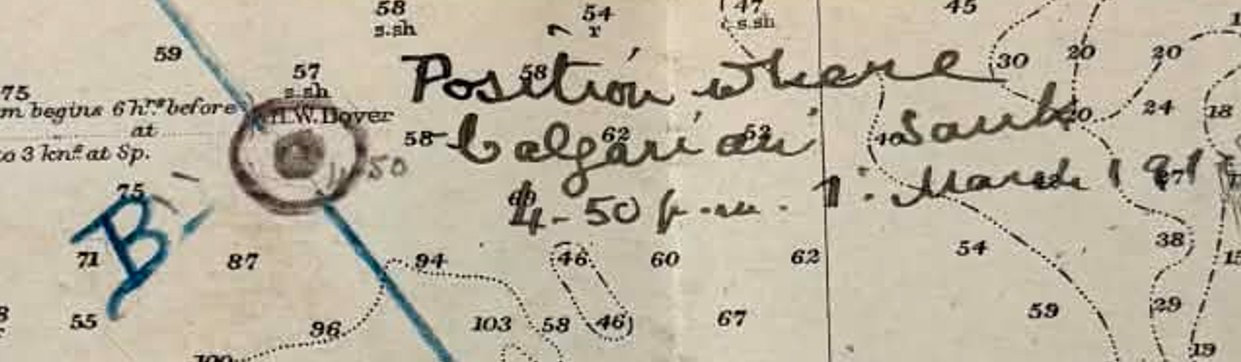 58 54 47 45
s.sh r s.sh
59 58 30 20 20
57
s.sh
Position where
75
m begins 6 hrs before H.W. Dover
at
to 3 kns at Sp.
58 62 53 40 20 24 18
"Calgarian" sunk
4.50
4-50 p.m. 1. March 191
75
B
71 87 94 46 60 62 54 38 15
55 96 103 58 46 67 59 29
100 19